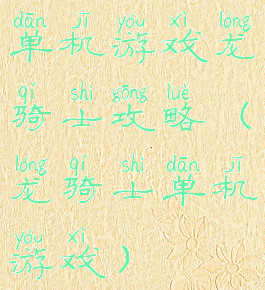 dān jī yóu xì long
单机游戏龙
qí shì gōng luè
骑士攻略（
long qí shì dān jī
龙骑士单机
yóu xì
游戏）